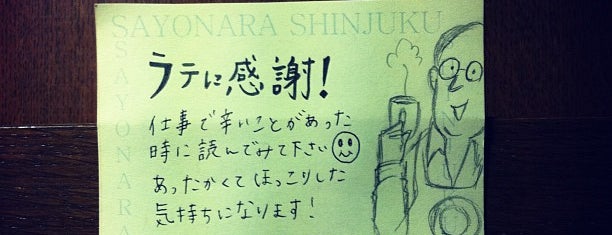 SAYONARA SHINJUKU
SAYONARA
ラテに感謝!
仕事で辛いことがあった
時に読んでみて下さい
あったかくてほっこりした
気持ちになります!